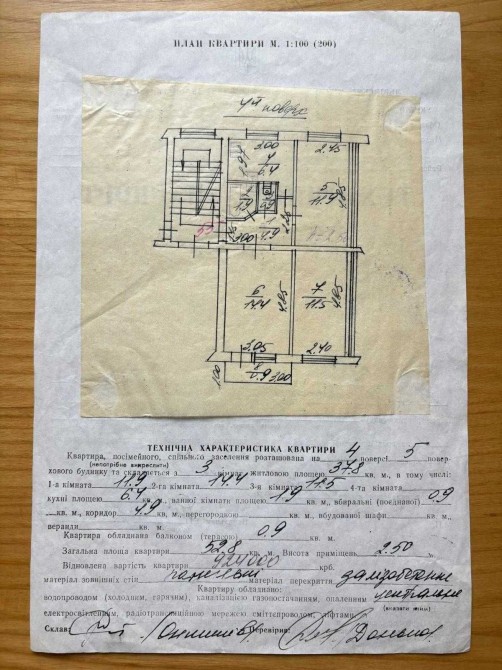 ПЛАН КВАРТИРИ М. 1:100 (200)
4й поверх
3.00
2.45
4
6.4
5
11.9
4.85
1.9
0.9
1
4.9
3.00
6
14.4
4.85
7
11.5
4.85
3.05
2.40
8
0.9
3.00
1.00
ТЕХНІЧНА ХАРАКТЕРИСТИКА КВАРТИРИ
Квартира, посімейного, спільного заселення розташована на 4 поверсі 5 повер-
(непотрібне викреслити)
хового будинку та складається з 3 кімнат житловою площею 37.8 кв. м., в тому числі:
1-а кімната 11.9 2-га кімната 14.4 3-я кімната 11.5 4-та кімната
кухні площею 6.4 кв. м., ванної кімнати площею 1.9 кв. м., вбиральні (поєднаної) 0.9
кв. м., коридор 4.9 кв. м., перегородкою кв. м., вбудованої шафи кв. м.,
веранди кв. м.
Квартира обладнана балконом (терасою) 0.9 кв. м.
Загальна площа квартири 52.8 кв. м. Висота приміщень 2.50 м.
Відновлена вартість квартири 924000 крб.
матеріал зовнішніх стін панельні матеріал перекриття залізобетонне
Квартиру обладнано:
водопроводом (холодним, гарячим), каналізацією газопостачанням, опаленням центральне
(вказати яким)
електросвітленням, радіотрансляційною мережею сміттєпроводом, ліфтами.
Склав: Перевірив: